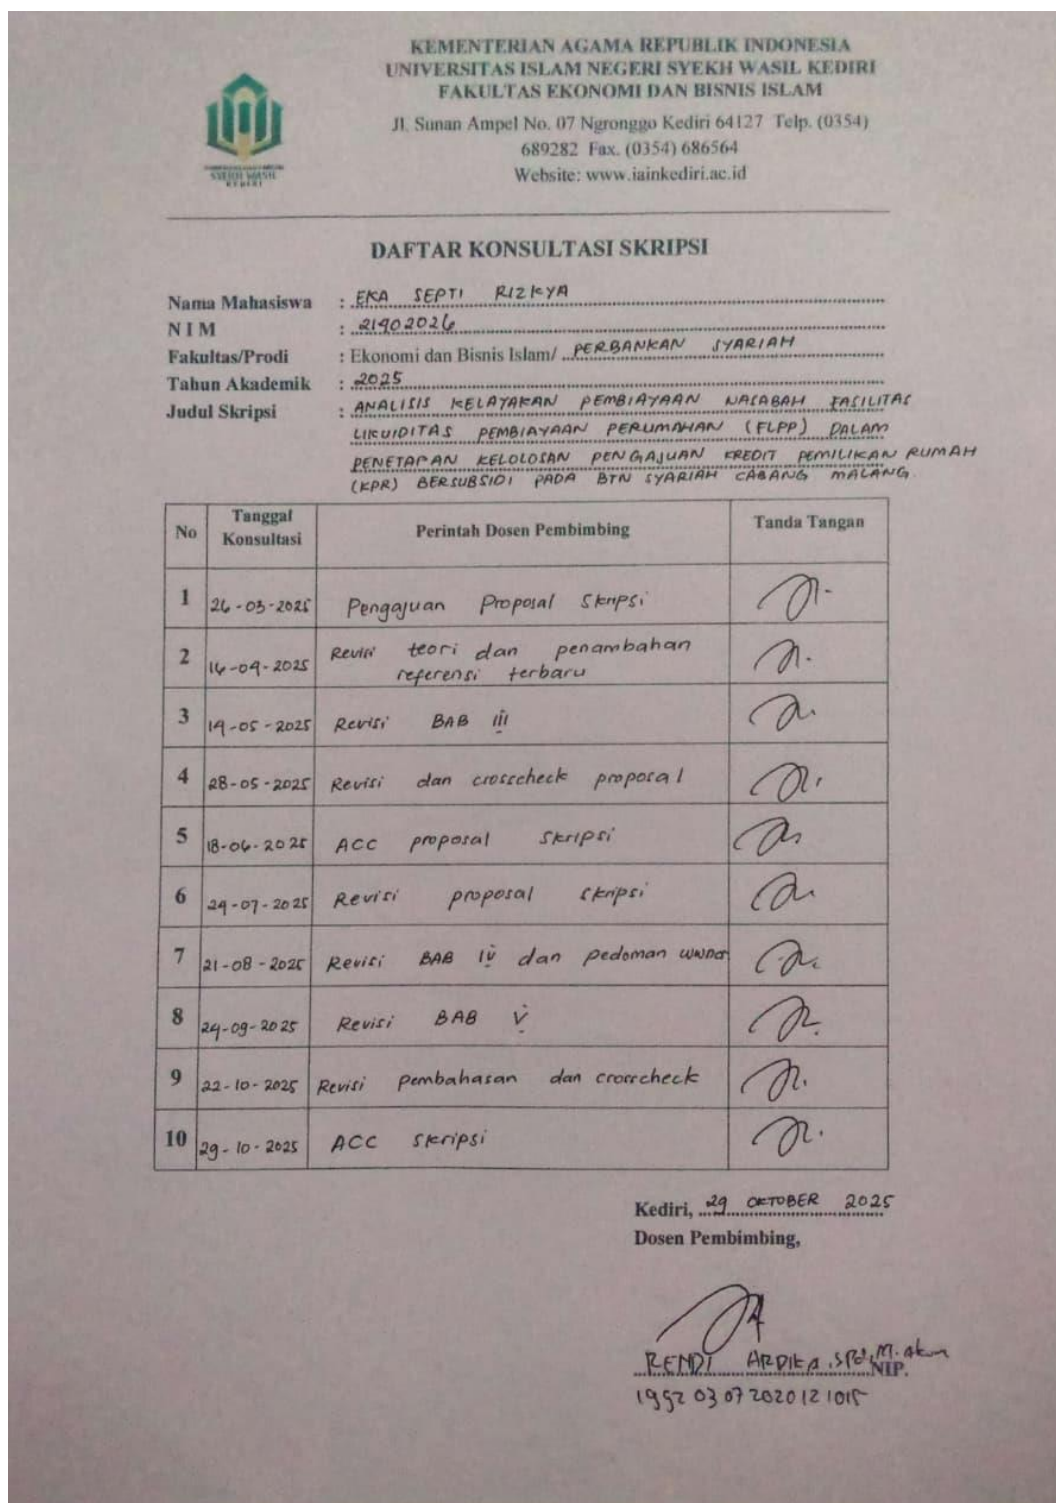 KEMENTERIAN AGAMA REPUBLIK INDONESIA
UNIVERSITAS ISLAM NEGERI SYEKH WASIL KEDIRI
FAKULTAS EKONOMI DAN BISNIS ISLAM
Jl. Sunan Ampel No. 07 Ngronggo Kediri 64127 Telp. (0354)
689282 Fax. (0354) 686564
Website: www.iainkediri.ac.id
SYEKH WASIL
KEDIRI
DAFTAR KONSULTASI SKRIPSI
Nama Mahasiswa : EKA SEPTI RIZKYA
NIM : 21402026
Fakultas/Prodi : Ekonomi dan Bisnis Islam/ PERBANKAN SYARIAH
Tahun Akademik : 2025
Judul Skripsi : ANALISIS KELAYAKAN PEMBIAYAAN NASABAH FASILITAS
LIKUIDITAS PEMBIAYAAN PERUMAHAN (FLPP) DALAM
PENETAPAN KELOLOSAN PENGAJUAN KREDIT PEMILIKAN RUMAH
(KPR) BERSUBSIDI PADA BTN SYARIAH CABANG MALANG.
No Tanggal Konsultasi Perintah Dosen Pembimbing Tanda Tangan
1 26-03-2025 Pengajuan Proposal Skripsi
2 16-04-2025 Revisi teori dan penambahan
referensi terbaru
3 14-05-2025 Revisi BAB III
4 28-05-2025 Revisi dan crosscheck proposal
5 18-06-2025 ACC proposal skripsi
6 24-07-2025 Revisi proposal skripsi
7 21-08-2025 Revisi BAB IV dan pedoman
8 24-09-2025 Revisi BAB V
9 22-10-2025 Revisi pembahasan dan crosscheck
10 29-10-2025 ACC skripsi
Kediri, 29 OKTOBER 2025
Dosen Pembimbing,
RENDI ARDIKA, SPd, M. Akun
NIP.
199203072020121015